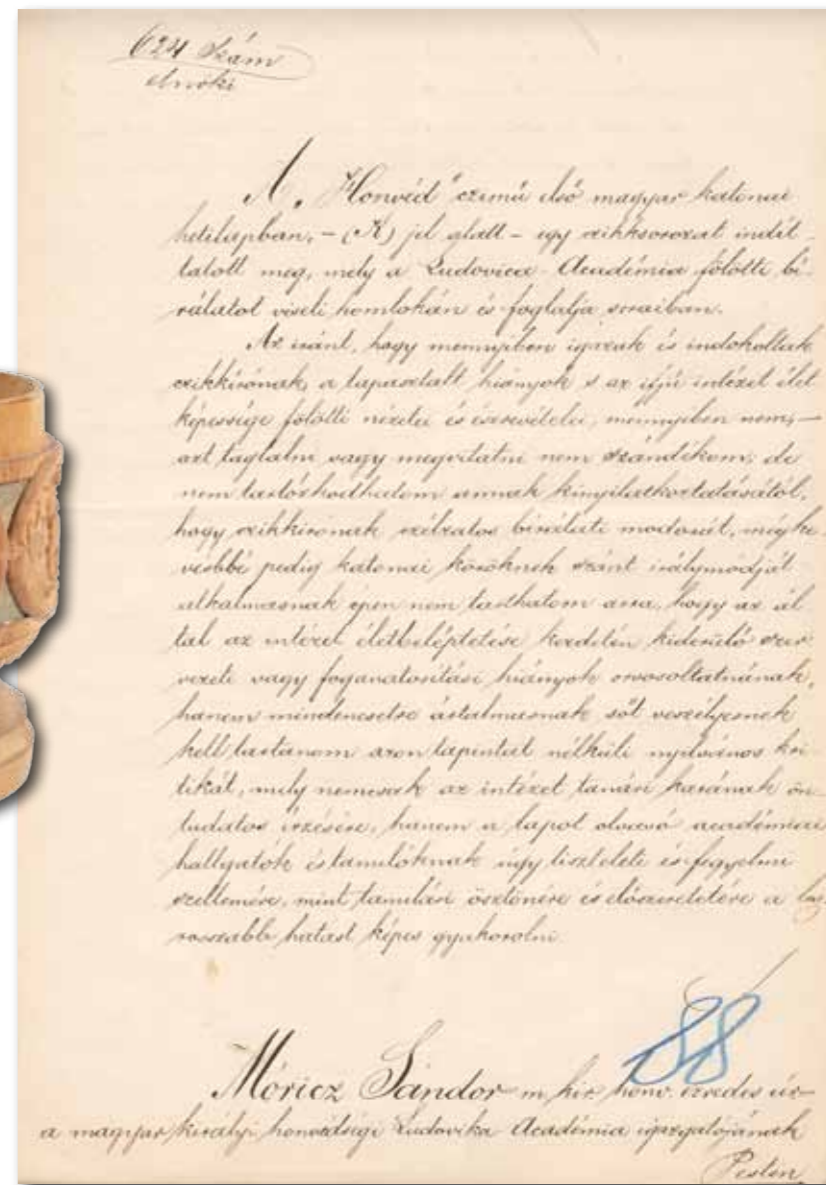 624 Szám
elnöki
A „Honvéd" czimü első magyar katonai
hetilapban, – (K) jel alatt – egy czikksorozat indít-
tatott meg, mely a Ludovica-Académia fölötti bí-
rálatot viseli homlokán és foglalja soraiban.
Az iránt, hogy mennyiben igazak és indokoltak
czikkirónak, a tapasztalt hiányok s az ifjú intézet élet
képessége fölötti nézetei és észrevételei, mennyiben nem, –
azt taglalni vagy megvitatni nem szándékom; de
nem tartózkodhatom annak kinyilatkoztatásától,
hogy czikkirónak célzatos birálati modorát, mégke-
vesbbé pedig katonai köröknek szánt irálymódját
alkalmasnak épen nem tarthatom arra, hogy az ál
tal az intézet életbeléptetése kezdetén kiderülő szer
vezeti vagy foganatositási hiányok orvosoltatnának,
hanem mindenesetre ártalmasnak sőt veszélyesnek
kell tartanom azon tapintat nélküli nyilvános kri
tikát, mely nemcsak az intézet tanári karának ön-
tudatos érzésére, hanem a lapot olvasó académiai
hallgatók és tanulóknak úgy tiszteleti és fegyelmi
szellemére, mint tanulási ösztönére és előszeretetére a leg-
rosszabb hatást képes gyakorolni.
88
Móricz Sándor m. kir. honv. ezredes úr-
a magyar királyi honvédségi Ludovika Academia igazgatójának
Pesten